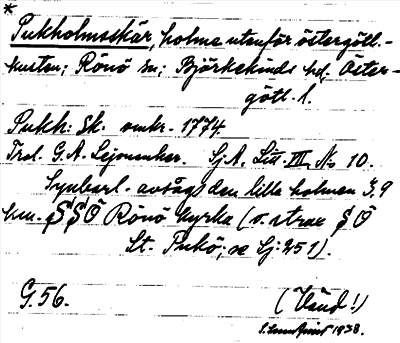 *
Pukholmsskär, holme utanför östergötl.-
kusten; Rönö sn; Björkekinds hd, Öster-
götl. l.
Pukh: Sk. omkr. 1774.
Trol. G. A. Lejonanker. Sj.A. Litt. III No 10.
Synbarl. avsåg den lilla holmen 3,9
km. SSO Rönö kyrka (o. strax SO
St. Pukö, se Gj: 251).
G. 56. (Vänd!)
S. Lundqvist 1938.